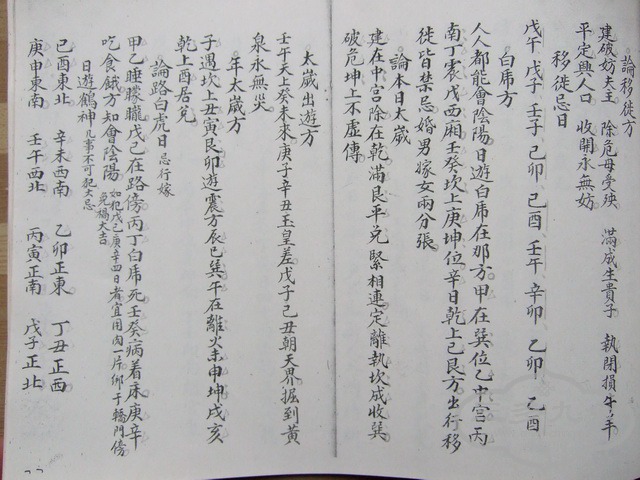 論移徙方
建破妨夫主　除危母受殃　滿成生貴子　執閉損牛羊
平定興人口　收開永無妨
移徙忌日
戊午　戊子　壬子　己卯　己酉　壬午　辛卯　乙卯　己酉
白虎方
人人都能會陰陽日遊白虎在那方甲在巽位乙中宮丙
南丁震戊西廂壬癸坎上庚坤位辛日乾上己艮方出行移
徙皆禁忌婚男嫁女兩分張
論本日太歲
建在中宮除在乾滿艮平兌緊相連定離執坎成收巽
破危坤上不虛傳
太歲出遊方
壬午天上癸未來庚子辛丑玉皇差戊子己丑朝天界掘到黃
泉永無災
年太歲方
子遇坎上丑寅艮卯遊震方辰巳巽午在離火未申坤戌亥
乾上酉居兌
論路白虎日　忌行嫁
甲乙睡朦朧戊己在路傍丙丁白虎死壬癸病着床庚辛
吃食餓方知會陰陽　如犯戊己庚辛四日者宜用肉一片綁于轎門傍
免禍大吉
日遊鶴神　凡事不可犯大忌
己酉東北　辛未西南　乙卯正東　丁丑正西
庚申東南　壬午西北　丙寅正南　戊子正北